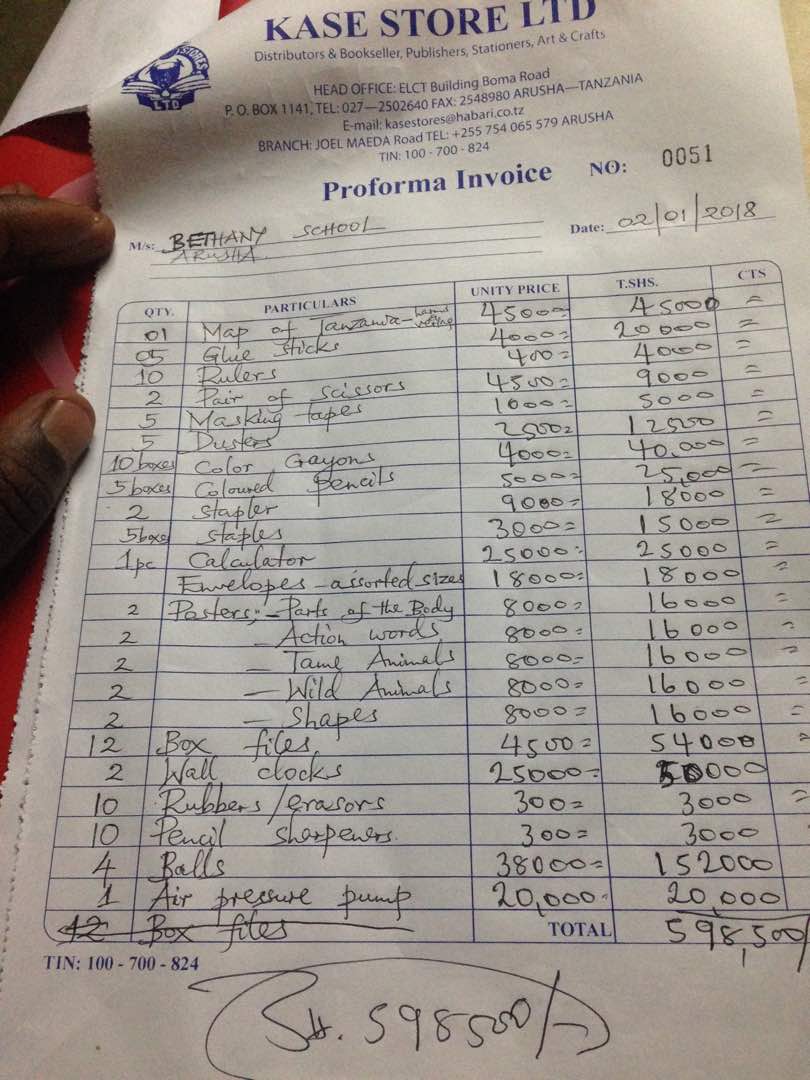 KASE STORE LTD
Distributors & Bookseller, Publishers, Stationers, Art & Crafts
STORES
LTD
HEAD OFFICE: ELCT Building Boma Road
P. O. BOX 1141, TEL: 027—2502640 FAX: 2548980 ARUSHA—TANZANIA
E-mail: kasestores@habari.co.tz
BRANCH: JOEL MAEDA Road TEL: +255 754 065 579 ARUSHA
TIN: 100 - 700 - 824
Proforma Invoice NO: 0051
M/s: BETHANY SCHOOL Date: 02/01/2018
ARUSHA
QTY. PARTICULARS UNITY PRICE T.SHS. CTS
01 Map of Tanzania - 45000= 45000 =
05 Glue sticks 4000= 20000 =
10 Rulers 400= 4000 =
2 Pair of scissors 4500= 9000 =
5 Masking tapes 1000= 5000 =
5 Dusters 2500= 12500 =
10 boxes Color Grayons 4000= 40,000 =
5 boxes Coloured pencils 5000= 25,000 =
2 stapler 9000= 18000 =
5 boxes staples 3000= 15000 =
1pc Calculator 25000= 25000 =
Envelopes - assorted sizes 18000= 18000 =
2 Posters;- Parts of the Body 8000= 16000 =
2 - Action words 8000= 16000 =
2 - Tame Animals 8000= 16000 =
2 - Wild Animals 8000= 16000 =
2 - Shapes 8000= 16000 =
12 Box files 4500= 54000 =
2 Wall clocks 25000= 50000
10 Rubbers/erasors 300= 3000 =
10 Pencil sharpeners. 300= 3000
4 Balls 38000= 152000
1 Air pressure pump 20,000= 20,000
12 Box files TOTAL 598,500/
TIN: 100 - 700 - 824
Sh. 598500/=